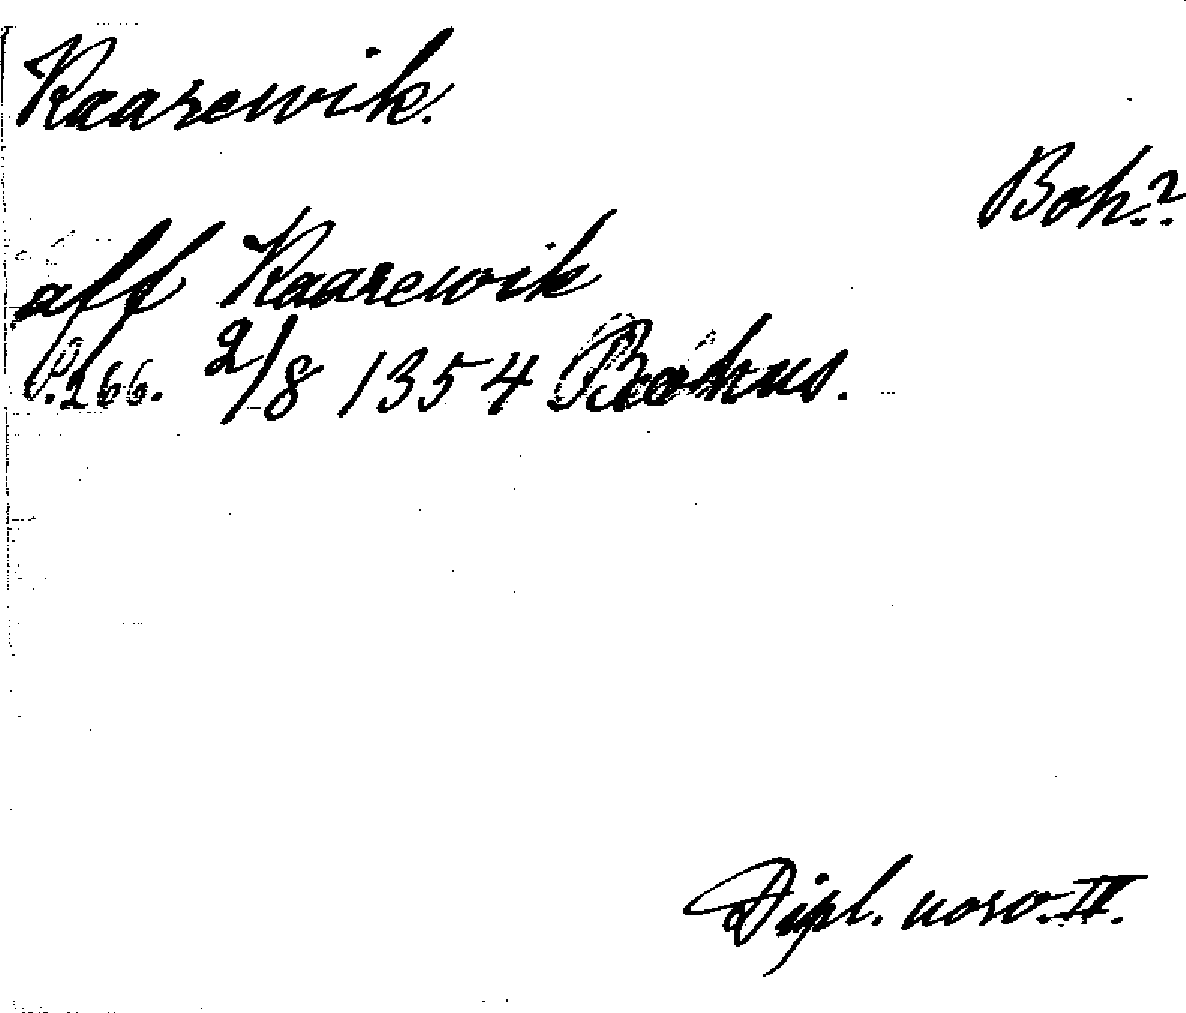 Kaarewik.
Boh.?
aff Kaarewik
P. 266. 2/8 1354 Baahus.
Dipl. norv. II.